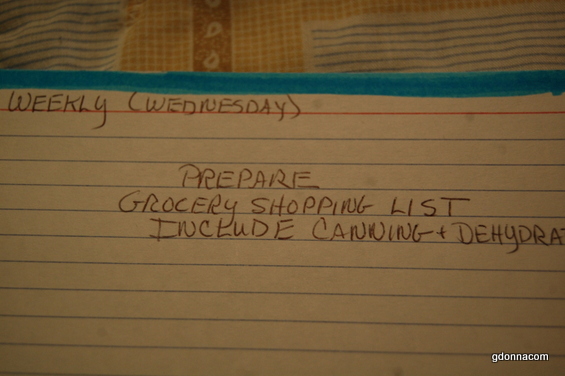 WEEKLY (WEDNESDAY)
PREPARE
GROCERY SHOPPING LIST
INCLUDE CANNING + DEHYDRA
gdonnacom